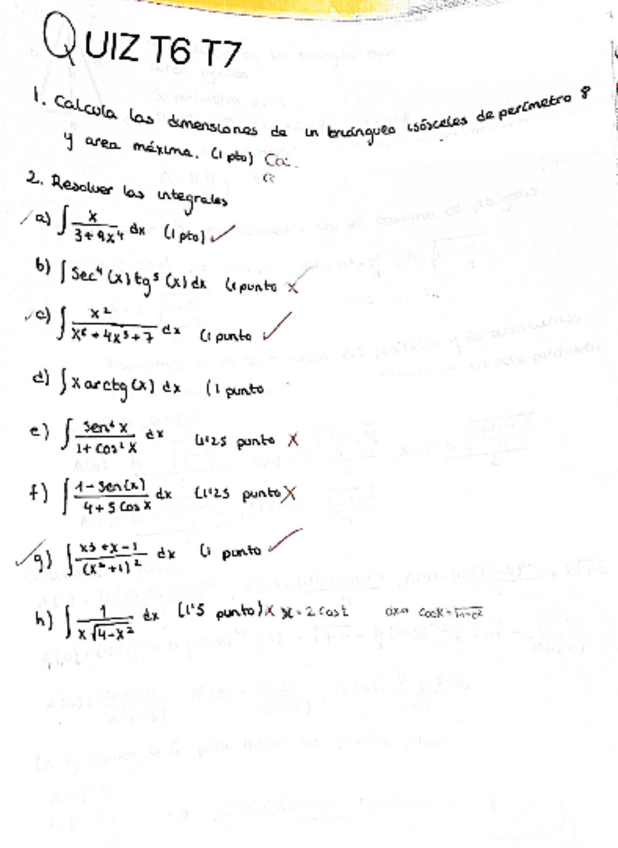 QUIZ T6 T7
1. Calcula las dimensiones de un triángulo isósceles de perímetro 8
y area máxima. (1 pto)
2. Resolver las integrales
a) ∫ x / (3+9x⁴) dx (1 pto) ✓
b) ∫ Sec⁴(x) tg⁵(x) dx (1 punto x
c) ∫ x² / (x⁶+4x³+7) dx (1 punto ✓
d) ∫ x arctg(x) dx (1 punto
e) ∫ / (1+cos²x) dx (1'25 punto x
f) ∫ (1-sen(x)) / (4+5cosx) dx (1'25 punto x
g) ∫ (x3+x-1) / (x²+1)² dx (1 punto ✓
h) ∫ 1 / (x√(4-x²)) dx (1'5 punto) x x=2cost